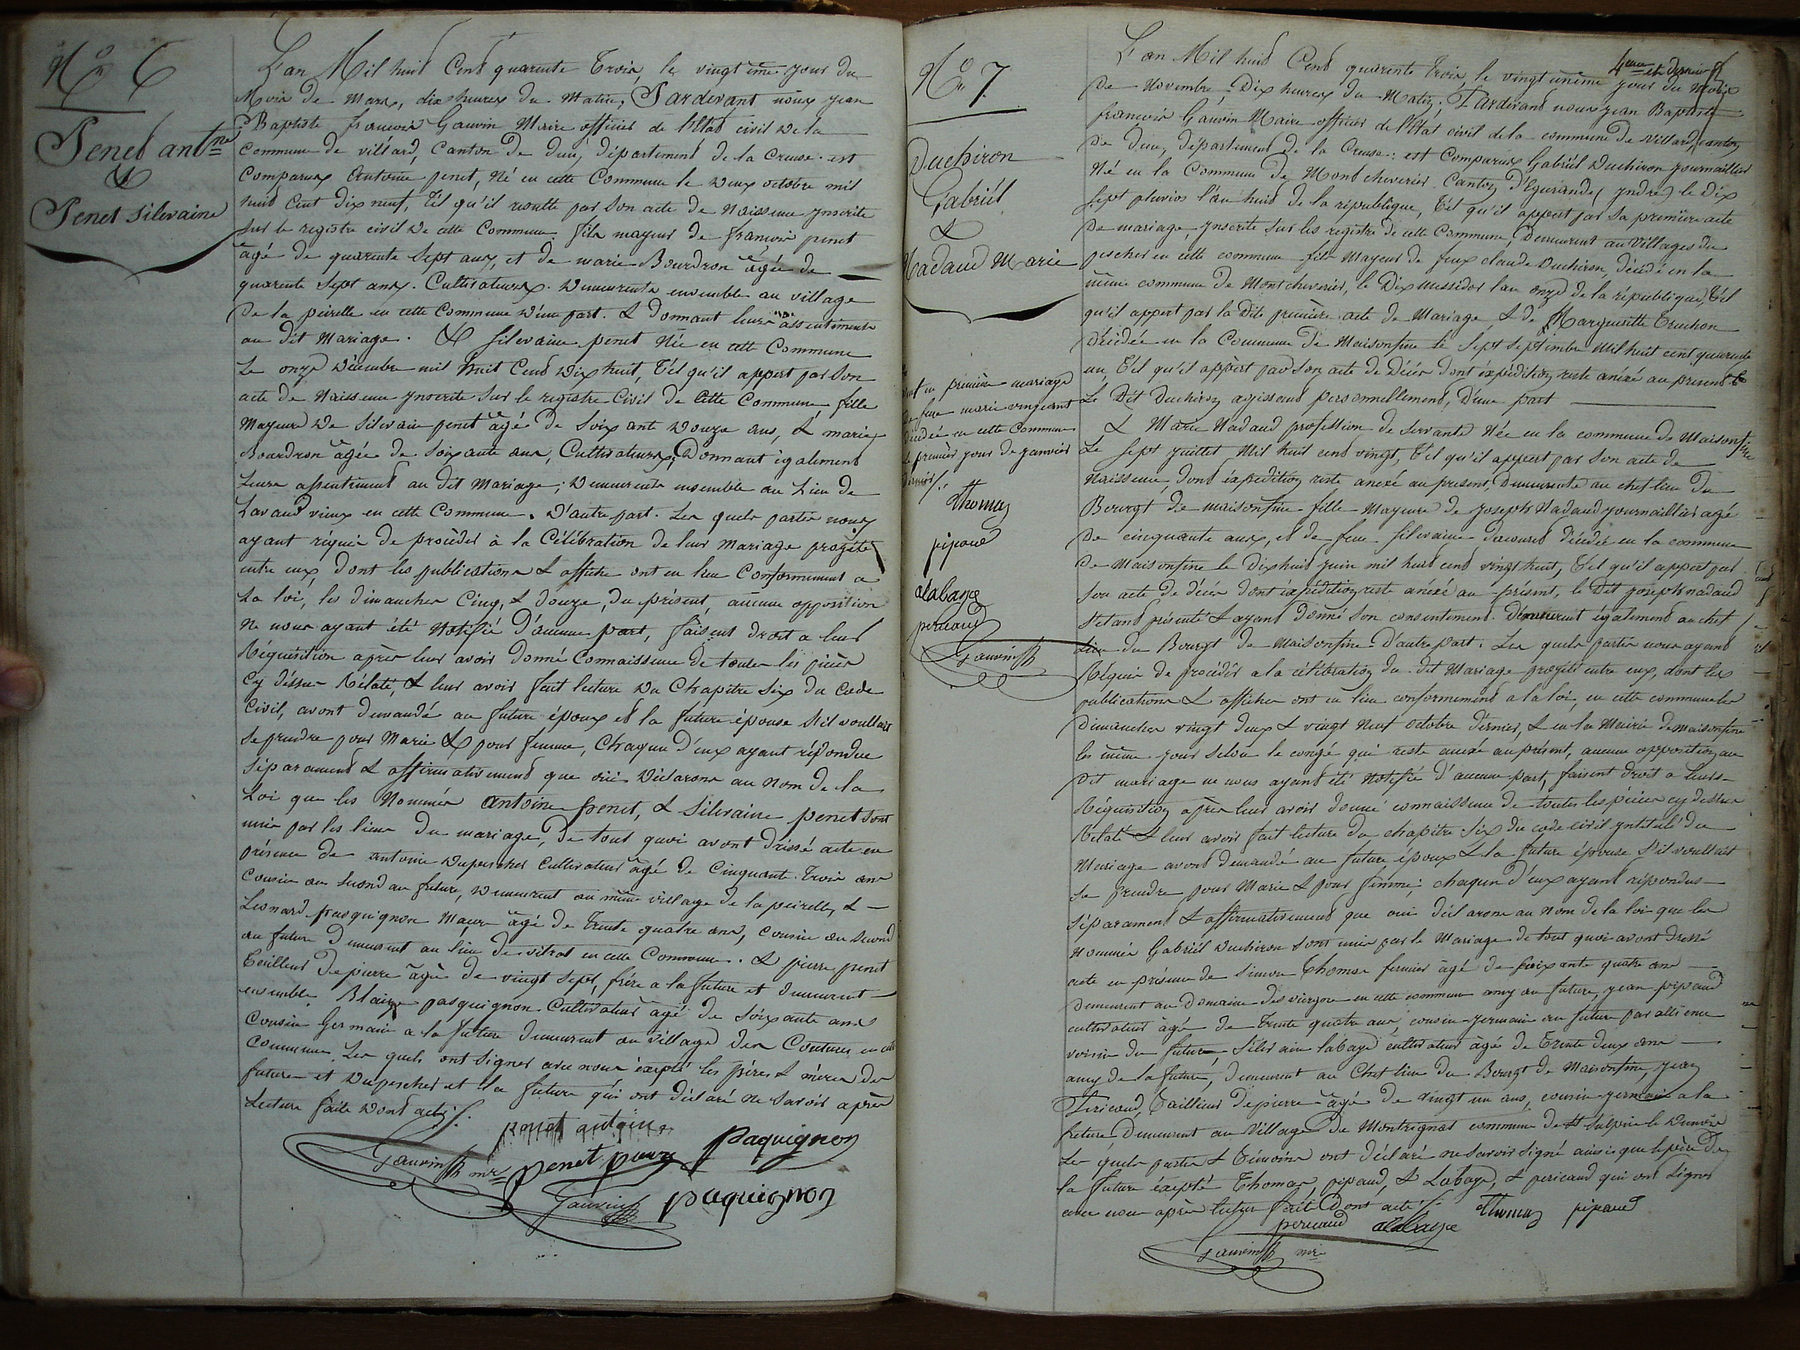 N° 6
Penet ant.ne
&
Penet Silevaine
L'an Mil huit Cent quarente trois, le vingtième jour du
Mois de Mars, dix heures du Matin; Pardevant nous jean
Baptiste françois Gauvin Maire officier de l'Etat civil de la
commune de villard, Canton de dun, département de la Creuse. est
comparux Antoine penet, Né en cette Commune le deux octobre mil
huit Cent dix neuf, t'èl qu'il résulte par Son acte de Naissense ynscrite
sur le registre civil de cette Commune, fils mayeur de françois penet
âgé de quarente Sept ans, et de marie Bourdron âgée de
quarente Sept ans. Cultivateurs. demeurents ensemble au village
De la peirelle en cette Commune d'une part. & donnant leurs assentiments
au dit Mariage. & Silevaine penet Née en cette Commune
Le onze Décembre mil huit Cent Dix huit, t'èl qu'il appert par Son
acte de Naissense ynscrite Sur le registre Civil de Cette Commune fille
Mayeure de Silevain penet âgé de Soixant Douze ans, & marie
Bourdron âgée de Soixante ans, Cultivateurs, Donnant également
Leurs assentiment au dit Mariage; demeurents ensemble au Lieu de
Lavaud vieux en cette Commune. D'autre part. Les quels parties nous
ayant réquis de procèder à la Célébration de leur Mariage projété
entre eux, dont les publications & affiche ont eu lieu Conformément a
La loi, les dimanches Cinq, & douze, du présent, aucune opposition
Ne nous ayant été Notifié D'aucune part, faisent droit a leur
Réquisition après leur avoir Donné Connaissense de toutes les pièces
Cy dessus Rélaté, & leur avoir fait lecture du Chapitre Six du Code
Civil, avont demandé au future époux et la future épouse S'il voullait
Se prendre pour Marie & pour femme, Chaqun d'eux ayant répondue
Séparament & affirmativement que oui Déclarons au Nom de la
Loi que les Nommés Antoine penet, & Silevaine penet Sont
unis par les liens du mariage, de tout quoi avont Dréssé acte en
présence de antoine Dupescher Cultivateur âgé de Cinquant trois ans
Cousin au Segond au future, Demeurent au même village de la peirelle, &
Leonard pasquignon Maçon âgé de trente quatre ans, cousin au Segond
au future Demeurent au lieu de vitrat en cette Commune. & pierre penet
tailleur De pierre âgé de vingt Sept, frère a la future et Demeurent
ensemble Blaize pasquignon Cultivateur âgé de Soixante ans
Cousin Germain a la future Demeurent au village des Coutures en cette
Commune. Les quels ont Signer avec nous éxepté les pères & mères des
futurs et Dupescher et la future qui ont déclaré ne Savoir après
Lecture faite Dont acte.
penet antoine
Gauvin mre penet pierre paquignon
Gauvin paquignon
N° 7.
Duchiron
Gabriél
&
Nadaud Marie
en première mariage
de feue marie
décédée en cette Commune
le premier jour de janvier
dernier.
thomas
pipaud
alabaye
pericaud
Gauvin
4eme et dernier
L'an Mil huit Cent quarente trois, le vingt unème jour du Mois
De Novembre. Dix heures du Matin. Pardevand nous jean Baptiste
françois Gauvin Maire officier de l'Etat civil de la commune de villard, canton
De dun, département de la Creuse: est Comparux Gabriél Duchiron journaillier
Né en la Commune de Montcheverier Canton D'Eguzande (yndre) le dix
Sept pluvios l'an huit de la république, t'èl qu'il appert par Sa première acte
De mariage, ynscrite Sur les registre de cette Commune, Demeurent au Villages du
pescher en cette commune fils Mayeur de feux claude Duchiron, décédé en la
même commune de Montcheverier, le Dix Messidor l'an onze de la république, t'èl
qu'il appert par la Dite première acte de Mariage & de Margueritte Truchon
Décédée en la Commune De Maisonfine le Sept Septembre Mil huit cent quarente
un, t'èl qu'il appert par Son acte de Décès dont éxpédition reste anéxé au présent &
Le Dit Duchiron agissent personnellement, D'une part
& Marie Nadaud profession de Servante Née en la commune de Maisonfine
Le Sept juillet Mil huit cent vingt, t'èl qu'il appert par Son acte de
Naissense, dont éxpédition reste anéxé au présent, demeurente au chef lieu du
Bourgt de maisonfine fille Mayeure de joseph Nadaud journaillier agé
De cinquante ans, et de feue Silevaine décédée en la commune
De Maisonfine le Dixhuit juin mil huit cent vingt huit, t'èl qu'il appert par
Son acte de Décès dont éxpédition reste anéxé au présent, le Dit joseph nadaud
S'étant présenté & ayant Donné Son consentement. Demeurent également au chef
lieu du Bourgt de Maisonfine D'autre part. Les quels parties nous ayant
Réquis de procéder a la célébration du dit Mariage projété entre eux, dont les
publications & affiches ont eu lieu conformément a la loi, en cette commune les
Dimanches vingt Deux & vingt Neuf octobre Dernier, & en la Mairie de Maisonfine
les même jours Selon le congé qui reste anéxé au présent, aucune opposition au
Dit mariage ne nous ayant été Notifié d'aucune part, faisent droit a leurs
Réquisition après leur avoir donné connaissense de toutes les pièces cy dessus
Rélaté & leur avoir fait lecture du chapitre Six du code civil yntitulé du
Mariage avont demandé au future époux & la future épouse S'il voullait
Se prendre pour Marie & pour femme; chaqun d'eux ayant répondus
Séparament & affirmativement que oui déclarons au nom de la loi que les
Nommés Gabriél Duchiron Sont unis par le Mariage de tout quoi avont dressé
acte en présence de Simon Thomas fermier âgé de Soixante quatre ans
Demeurent au Domaine des vierjou en cette commune amy au future, jean pipaud
cultivateur âgé de trente quatre ans, cousin germain au future par allience
voisin du future Silevain labaye cultivateur âgé de trente deux ans
amy de la future, demeurent au Chef lieu du Bourgt de Maisonfine, jean
Pericaud, tailleur de pierre âgé de vingt un ans, cousin germain a la
future Demeurent au Village de Montrignat commune de St Sulpice le Dunois
Les quels parties & témoins ont déclaré ne savoir signé ainsi que le père De
la future éxcepté Thomas, pipaud, & Labaye, & pericaud qui ont Signer
avec nous après lecture faite Dont acte.
thomas pipaud
pericaud alabaye
Gauvin mre